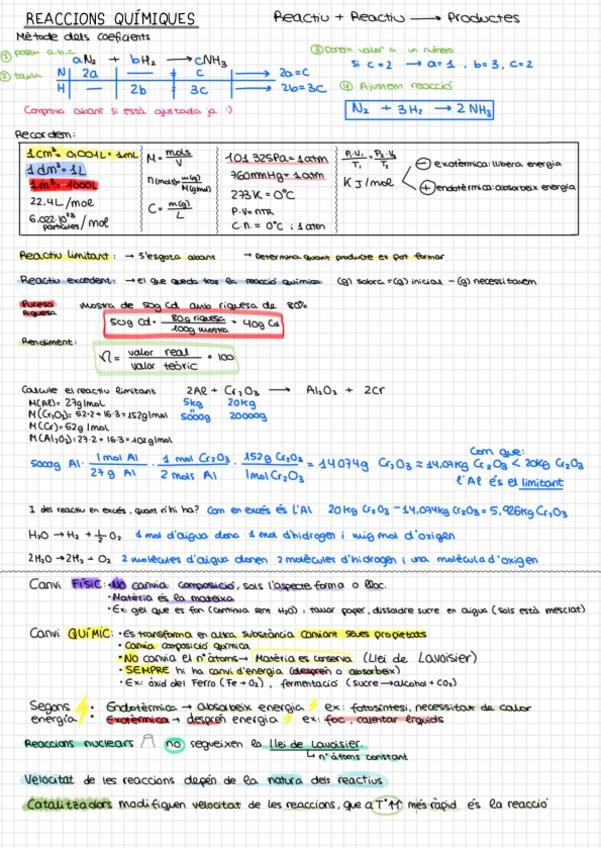 REACCIONS QUÍMIQUES
Reactiu + Reactiu ⟶ Productes
Mètode dels coeficients
① posem a.b.c
aN₂ + bH₂ ⟶ cNH₃
② taula
N | 2a | — | c ⟶ 2a=c
H | — | 2b | 3c ⟶ 2b=3c
③ Donem valor a un numero
si c=2 → a=1, b=3, c=2
④ Ajustem reacció
N₂ + 3H₂ → 2NH₃
Comprova abans si està ajustada ja :)
Recordem:
1cm³ = 0,001L = 1mL
1dm³ = 1L
1m³ = 1000L
22.4L/mol
6.022·10²³ particules/mol
M = mols/V
n(mols) = m(g)/M(g/mol)
C = m(g)/L
101 325Pa = 1atm
760mmHg = 1atm
273K = 0°C
P.V = nTR
C.n. = 0°C i 1atm
P₁.V₁/T₁ = P₂.V₂/T₂
KJ/mol
⊖ exotèrmica: llibera energia
⊕ endotèrmica: absorbeix energia
Reactiu limitant: → s'esgota abans → Determina quant producte es pot formar
Reactiu excedent: → el que queda tras la reacció química (g) sobra = (g) inicial - (g) necessitavem
Puresa: mostra de 50g Cd amb riquesa de 80%
Riquesa
50g Cd · 80g riquesa/100g mostra = 40g Cd
Rendiment:
η = valor real/valor teòric · 100
Calcula el reactiu limitant 2Al + Cr₂O₃ ⟶ Al₂O₃ + 2Cr
M(Al) = 27g/mol 5kg 20kg
M(Cr₂O₃) = 52·2+16·3 = 152g/mol 5000g 20000g
M(Cr) = 52g/mol
M(Al₂O₃) = 27·2+16·3 = 102g/mol
5000g Al · 1mol Al/27g Al · 1 mol Cr₂O₃/2 mols Al · 152g Cr₂O₃/1mol Cr₂O₃ = 14074g Cr₂O₃ ≈ 14.07Kg Cr₂O₃ < 20Kg Cr₂O₃
Com que:
l'Al és el limitant
I del reactiu en excés, quant n'hi ha? Com en excés és l'Al 20Kg Cr₂O₃ - 14.074Kg Cr₂O₃ = 5,926Kg Cr₂O₃
H₂O → H₂ + ½O₂ 1 mol d'aigua dona 1 mol d'hidrogen i mig mol d'oxigen
2H₂O → 2H₂ + O₂ 2 molècules d'aigua donen 2 molècules d'hidrogen i una molècula d'oxigen
Canvi FÍSIC: · No canvia composició, sols l'aspecte forma o lloc.
· Matèria és la mateixa
· Ex: gel que es fon (continua sent H₂O), tallar paper, dissoldre sucre en aigua (sols està mesclat)
Canvi QUÍMIC: · Es transforma en altra substància canviant seues propietats
· Canvia composició química
· NO canvia el n° àtoms → Matèria es conserva (Llei de Lavoisier)
· SEMPRE hi ha canvi d'energia (desprén o absorbeix)
· Ex: òxid del Ferro (Fe + O₂), fermentació (sucre → alcohol + CO₂)
Segons energia: · Endotèrmica → absorbeix energia ex: fotosíntesi, necessitat de calor
· Exotèrmica → desprén energia ex: foc, calentar líquids
Reaccions nuclears no segueixen la llei de Lavoisier.
↳ n° àtoms constant
Velocitat de les reaccions depén de la natura dels reactius
Catalitzadors modifiquen velocitat de les reaccions, que a T°↑↑ més ràpid és la reacció